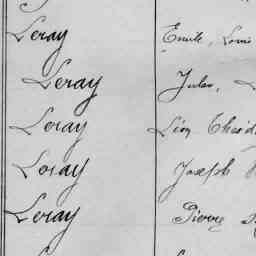 Leray Emile, Louis
Leray Jules,
Leray Léon Théod
Leray Joseph
Leray Pierre